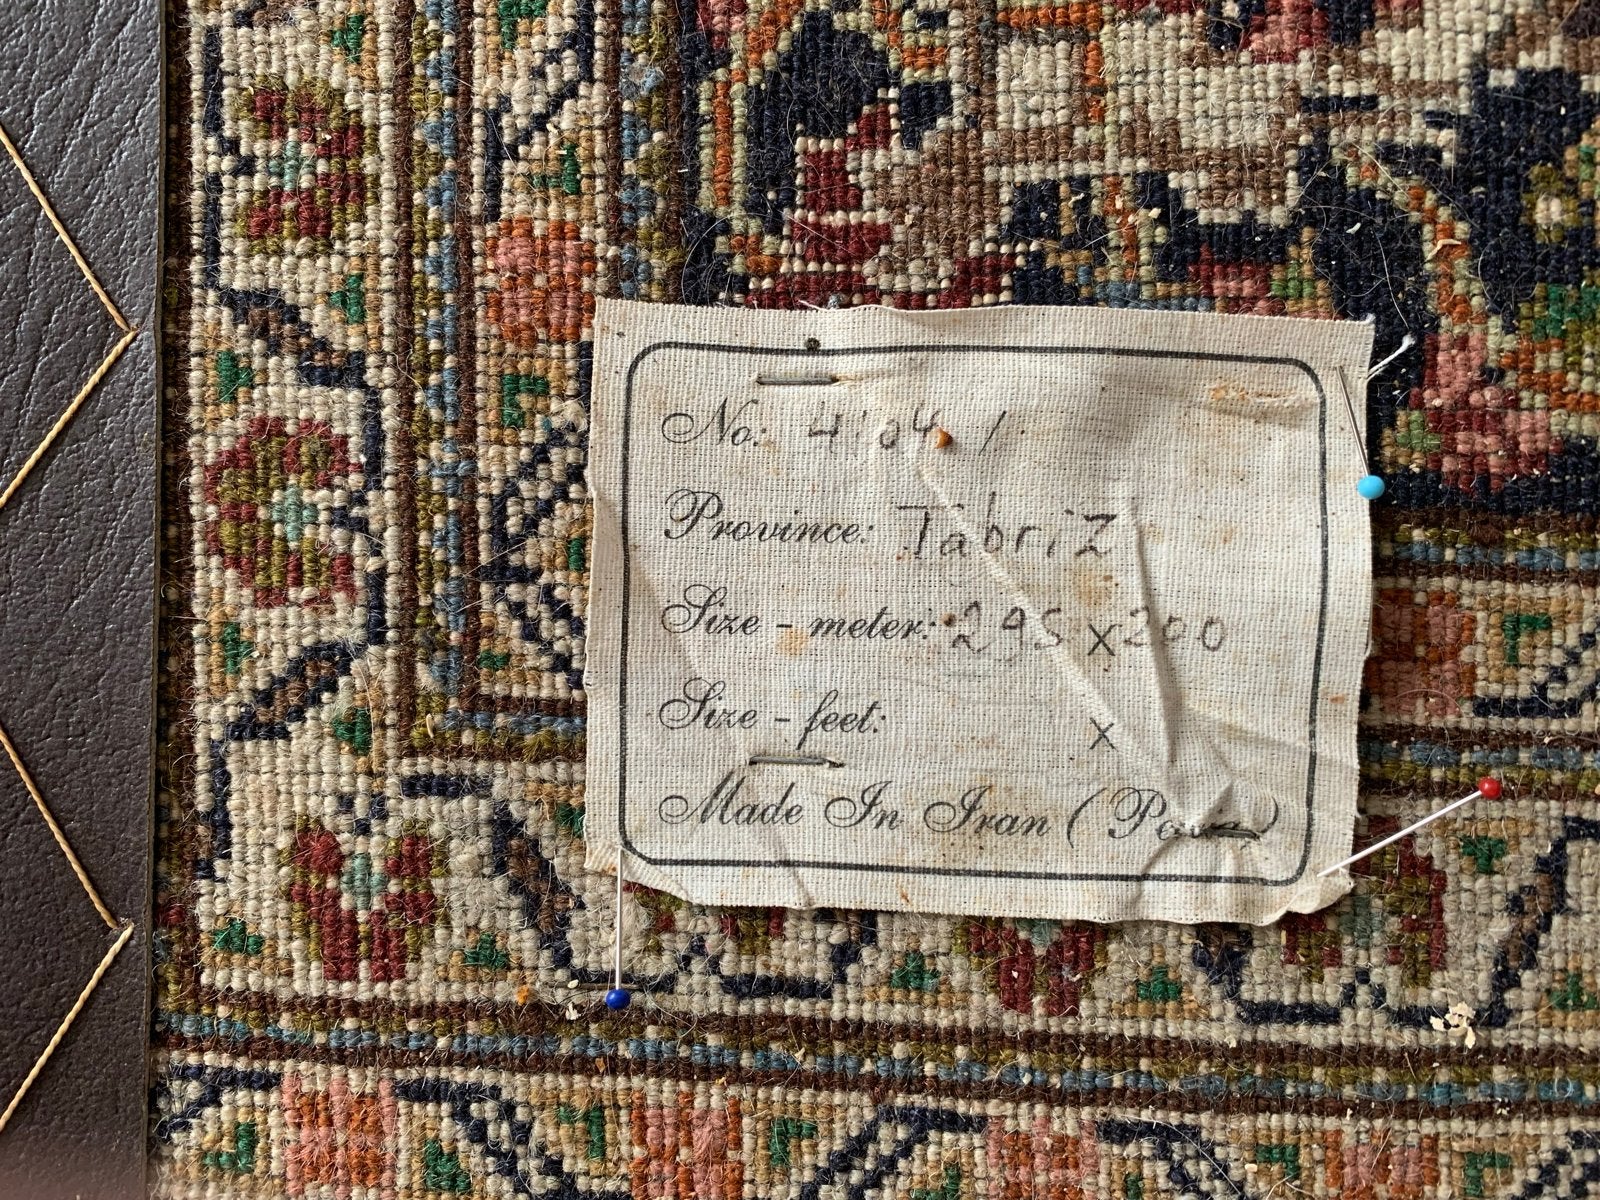 No: 4104 /
Province: Tabriz
Size - meter: 295 x 200
Size - feet: x
Made In Iran (